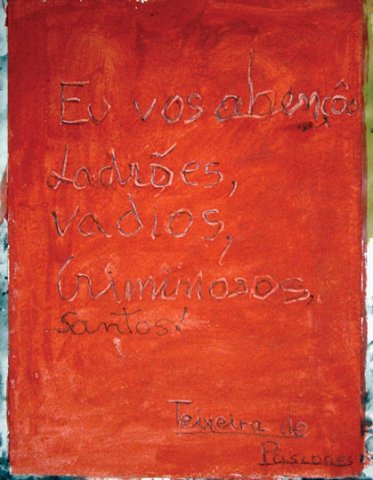 Eu vos abençôo
Ladrões,
Vadios,
Criminosos,
Santos!
Teixeira de
Pascoaes